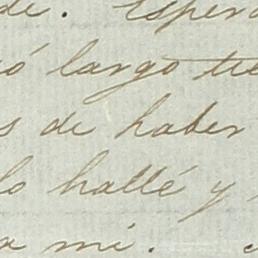 de. Espera
ó largo tie
s de haber
lo hallé y
a mi.